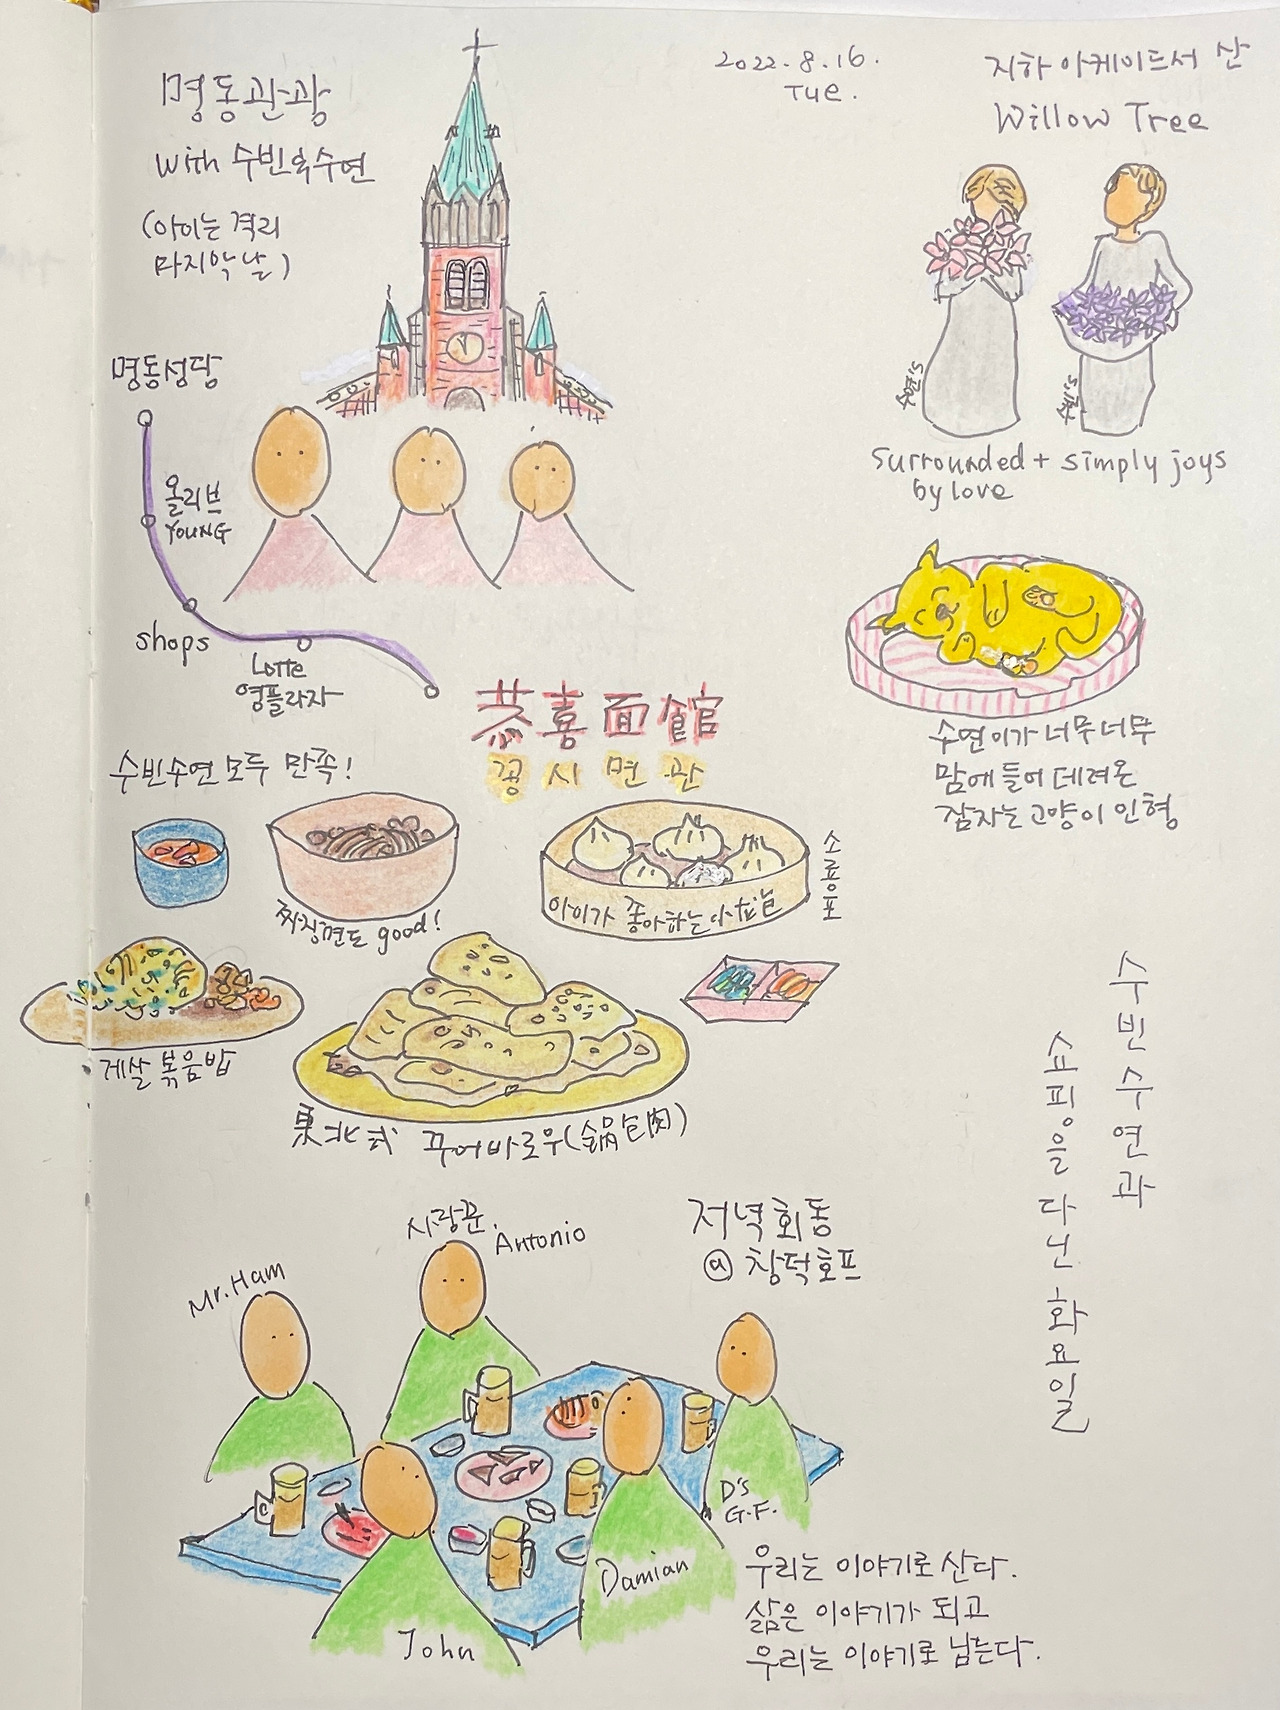 명동관광
with 수빈&수연
(아이는 격리
마지막 날)
2022. 8. 16.
Tue.
지하 아케이드서 산
Willow Tree
surrounded + simply joys
by love
명동성당
올리브
YOUNG
shops
Lotte
영플라자
수연이가 너무너무
맘에 들어 데려온
잠자는 고양이 인형
恭喜面館
꽁시면관
수빈수연 모두 만족!
짜장면도 good!
아이가 좋아하는 小龙包
소룡포
게살 볶음밥
東北式 꾸어바로우(鍋包肉)
수빈수연과
쇼핑을 다닌 화요일
저녁회동
@ 창덕호프
Mr. Ham
사랑꾼
Antonio
D's
G.F.
Damian
John
우리는 이야기로 산다.
삶은 이야기가 되고
우리는 이야기로 남는다.